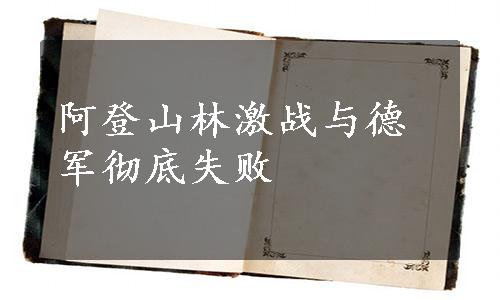 阿登山林激战与德
军彻底失败